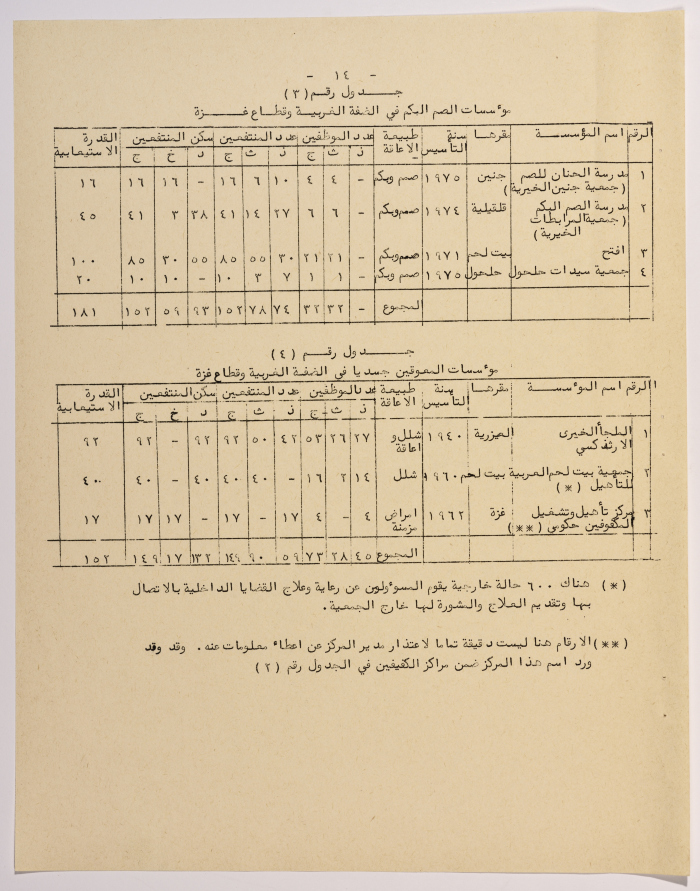 - ١٤ -
جــدول رقـم (٣)
مؤسسات الصم البكم في الضفة الغربية وقطاع غـزة
الرقم اسم المؤسسة مقرها سنة التأسيس طبيعة الاعاقة عدد الموظفين عدد المنتفعين سكن المنتفعين القدرة الاستيعابية
ذ ث ج ذ ث ج د خ ج
١ مدرسة الحنان للصم جنين ١٩٧٥ صم وبكم - ٤ ٤ ١٠ ٦ ١٦ - ١٦ ١٦ ١٦
(جمعية جنين الخيرية)
٢ مدرسة الصم البكم قلقيلية ١٩٧٤ صم وبكم - ٦ ٦ ٢٧ ١٤ ٤١ ٣٨ ٣ ٤١ ٤٥
(جمعية المرابطات
الخيرية)
٣ افتح بيت لحم ١٩٧١ صم وبكم - ٢١ ٢١ ٣٠ ٥٥ ٨٥ ٥٥ ٣٠ ٨٥ ١٠٠
٤ جمعية سيدات حلحول حلحول ١٩٧٥ صم وبكم - ١ ١ ٧ ٣ ١٠ - ١٠ ١٠ ٢٠
المجموع - ٣٢ ٣٢ ٧٤ ٧٨ ١٥٢ ٩٣ ٥٩ ١٥٢ ١٨١
جــدول رقــم (٤)
مؤسسات المعوقين جسديا في الضفة الغربية وقطاع غزة
الرقم اسم المؤسسة مقرها سنة التأسيس طبيعة الاعاقة عدد الموظفين عدد المنتفعين سكن المنتفعين القدرة الاستيعابية
ذ ث ج ذ ث ج د خ ج
١ الملجأ الخيرى العيزرية ١٩٤٠ شلل و ٢٧ ٢٦ ٥٣ ٤٢ ٥٠ ٩٢ ٩٢ - ٩٢ ٩٢
الارثذكسي اعاقة
٢ جمهية بيت لحم العربية بيت لحم ١٩٦٠ شلل ١٤ ٢ ١٦ - ٤٠ ٤٠ ٤٠ - ٤٠ ٤٠
للتأهيل (*)
٣ مركز تأهيل وتشغيل غزة ١٩٦٢ امراض ٤ - ٤ ١٧ - ١٧ - ١٧ ١٧ ١٧
المكفوفين حكومي (**) مزمنة
المجموع ٤٥ ٢٨ ٧٣ ٥٩ ٩٠ ١٤٩ ١٣٢ ١٧ ١٤٩ ١٥٢
(*) هناك ٦٠٠ حالة خارجية يقوم المسؤولون عن رعاية وعلاج القضايا الداخلية بالاتصال
بها وتقديم العلاج والمشورة لها خارج الجمعية.
(**) الارقام هنا ليست دقيقة تماما لاعتذار مدير المركز عن اعطاء معلومات عنه. وقد وقد
ورد اسم هذا المركز ضمن مراكز الكفيفين في الجدول رقم (٢)